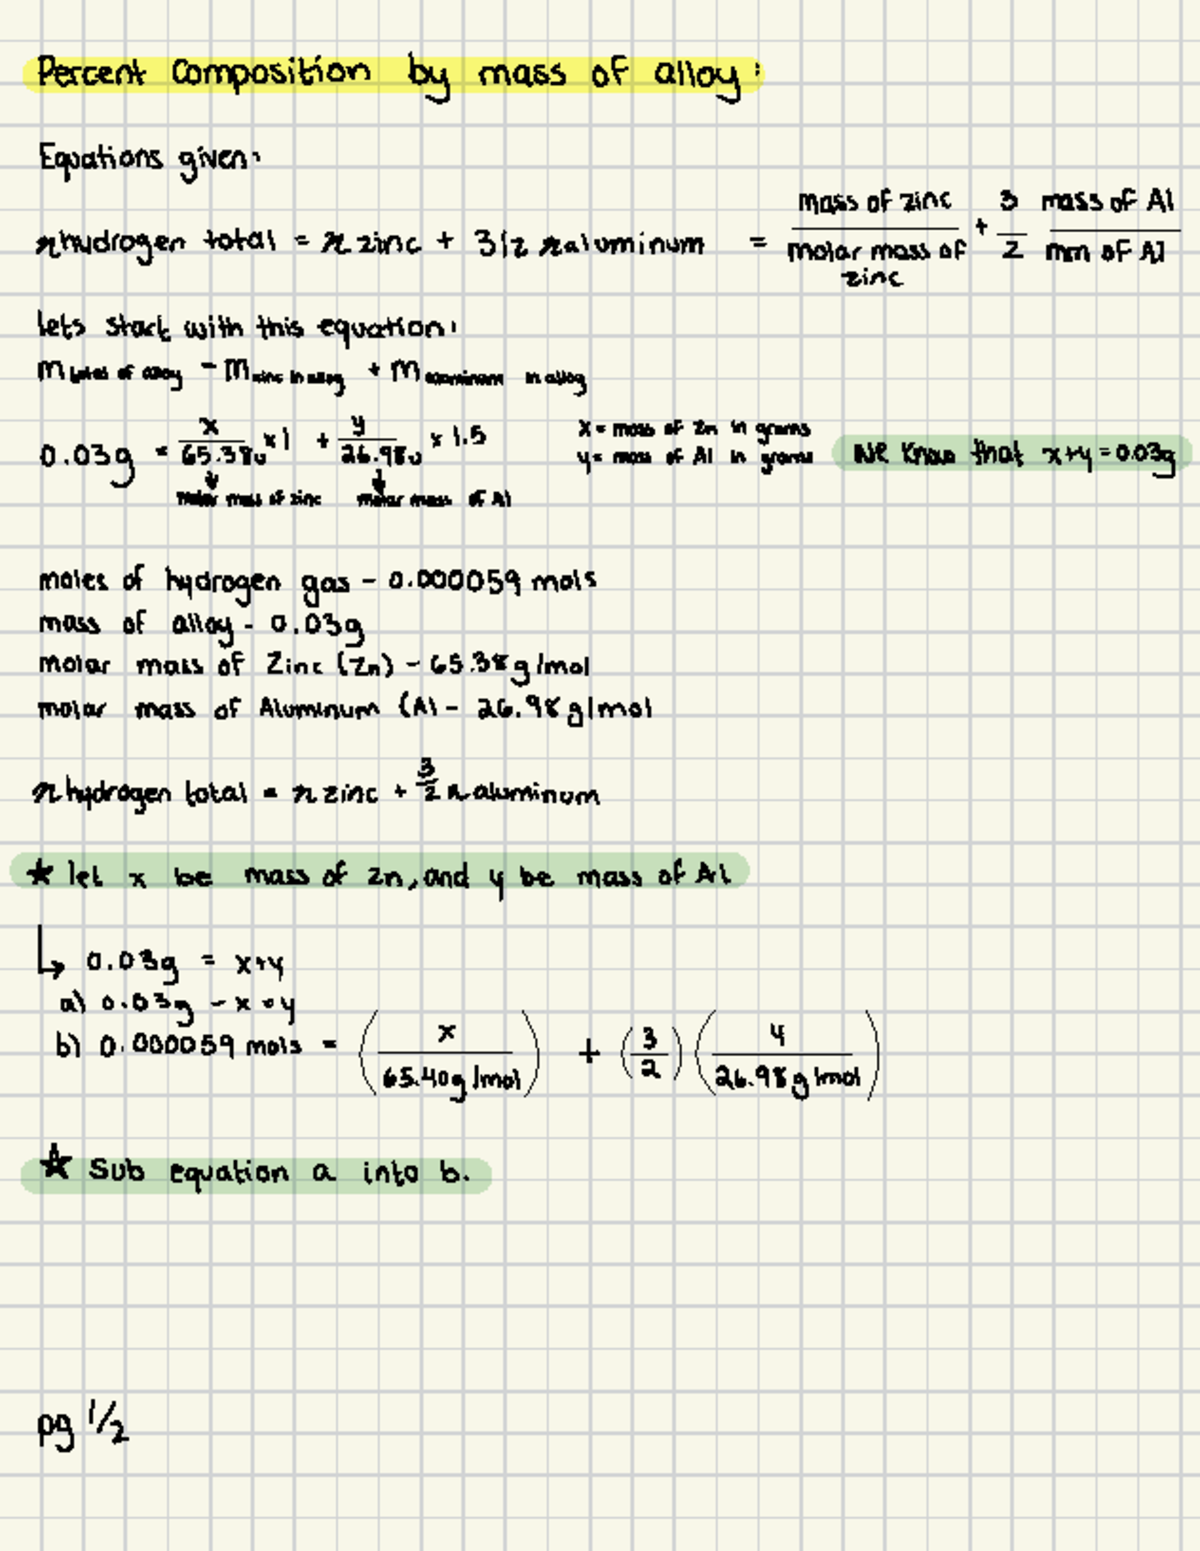 Percent Composition by mass of alloy:
Equations given:
nhydrogen total = n zinc + 3/2 n aluminum = mass of zinc / molar mass of zinc + 3/2 mass of Al / mm of Al
lets start with this equation:
m of alloy - m zinc in alloy + m in alloy
0.03g = x/65.38u x1 + y/26.98u x 1.5
x = mass of Zn in grams
y = mass of Al in grams
We know that x+y = 0.03g
molar mass of zinc molar mass of Al
moles of hydrogen gas - 0.000059 mols
mass of alloy - 0.03g
molar mass of Zinc (Zn) - 65.38g/mol
molar mass of Aluminum (Al - 26.98g/mol
n hydrogen total = n zinc + 3/2 n aluminum
★ let x be mass of Zn, and y be mass of Al
↳ 0.03g = x+y
a) 0.03g - x = y
b) 0.000059 mols = (x / 65.40g/mol) + (3/2) (y / 26.98g/mol)
☆ Sub equation a into b.
pg 1/2